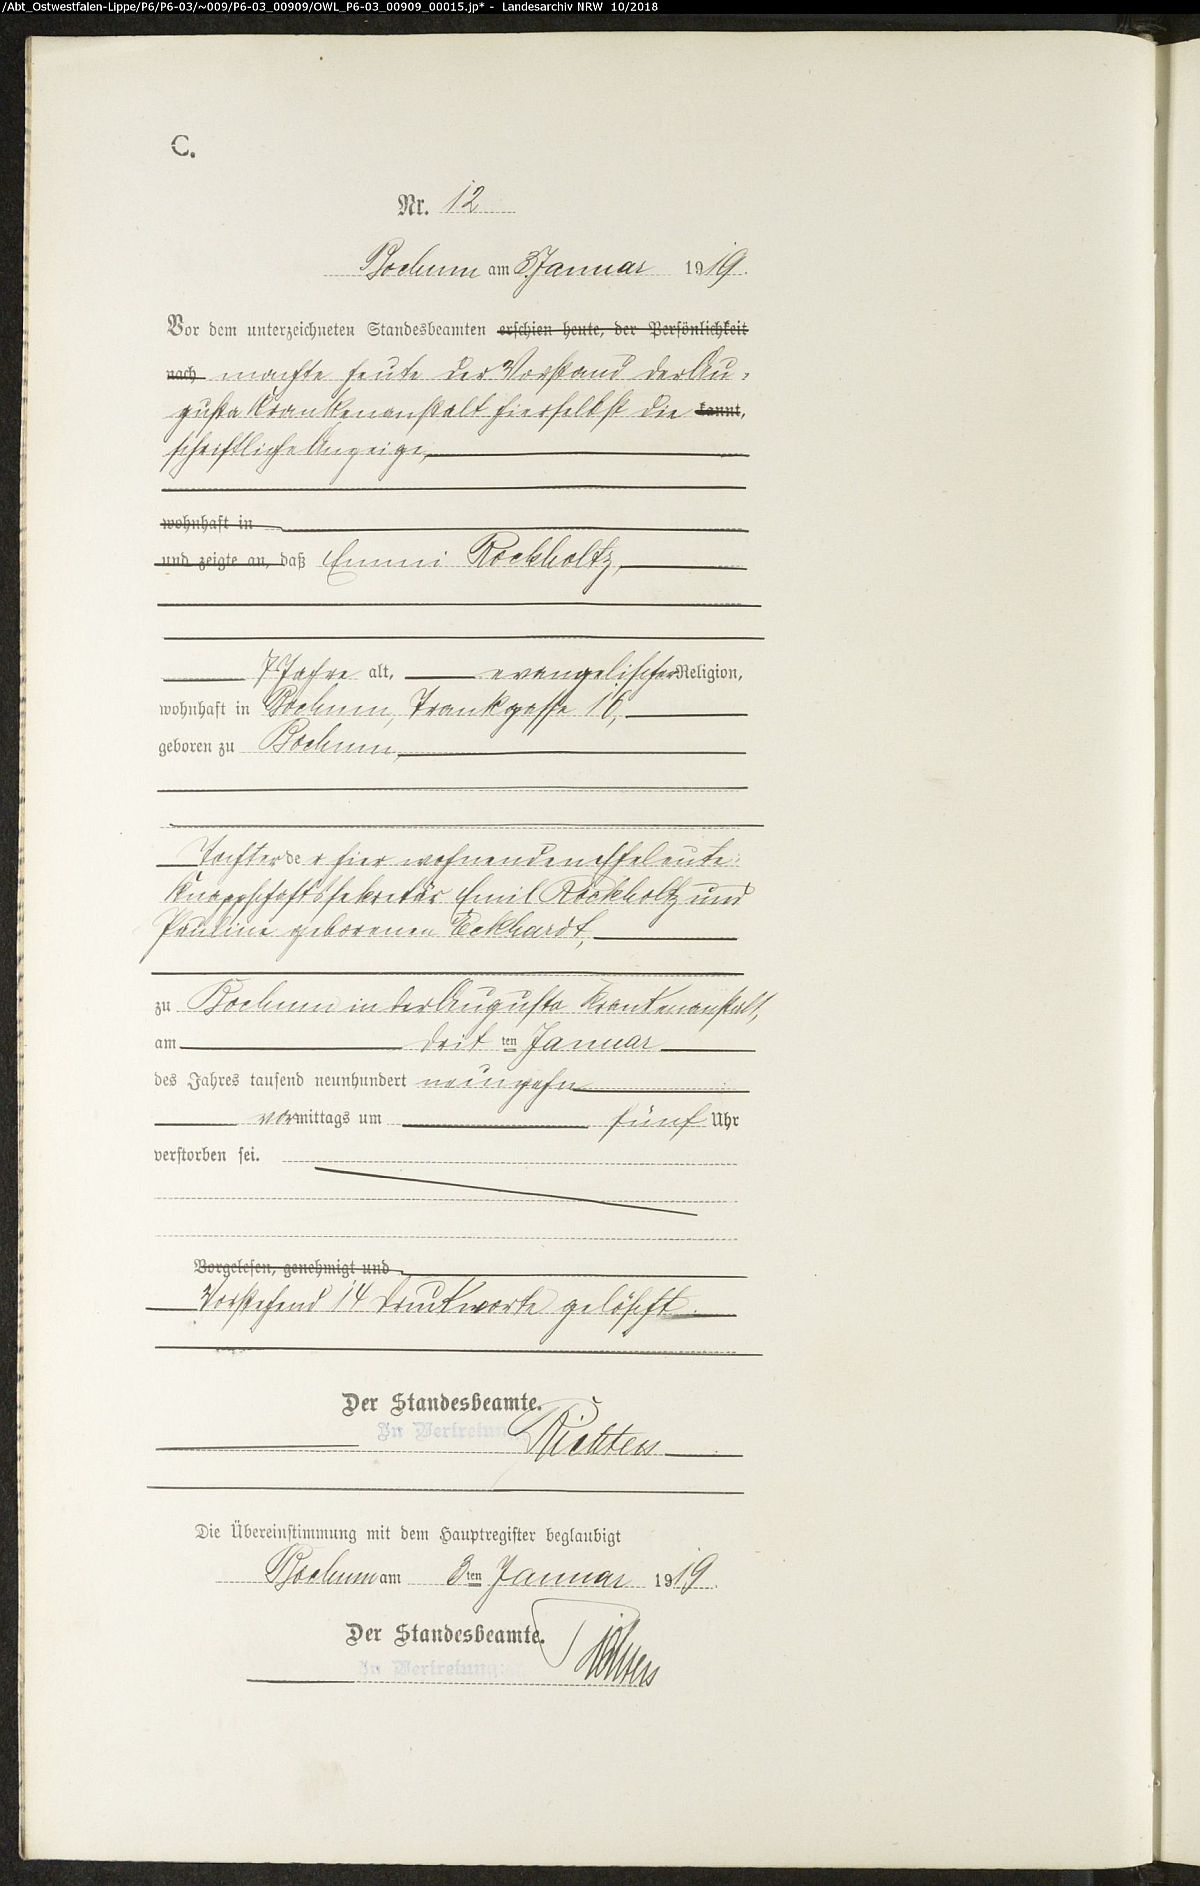 /Abt_Ostwestfalen-Lippe/P6/P6-03/~009/P6-03_00909/OWL_P6-03_00909_00015.jp* - Landesarchiv NRW 10/2018
C.
Nr. 12
Bochum am 3. Januar 1919.
Vor dem unterzeichneten Standesbeamten erschien heute, der Persönlichkeit
nach machte heute der Vorstand der Au-
gusta Krankenanstalt hierselbst die kannt,
schriftliche Anzeige,
wohnhaft in
und zeigte an, daß Emmi Rockholtz,
7 Jahre alt, evangelischer Religion,
wohnhaft in Bochum, Trankgasse 16,
geboren zu Bochum,
Tochter der hier wohnenden Eheleute:
Knappschaftssekretär Emil Rockholtz und
Pauline geborenen Eckhardt,
zu Bochum in der Augusta Krankenanstalt,
am drit ten Januar
des Jahres tausend neunhundert neunzehn
vormittags um fünf Uhr
verstorben sei.
Vorgelesen, genehmigt und
Vorstehend 14 Druckworte gelöscht.
Der Standesbeamte.
In Vertretung
Richters
Die Übereinstimmung mit dem Hauptregister beglaubigt
Bochum am 3ten Januar 1919.
Der Standesbeamte.
In Vertretung:
Richters